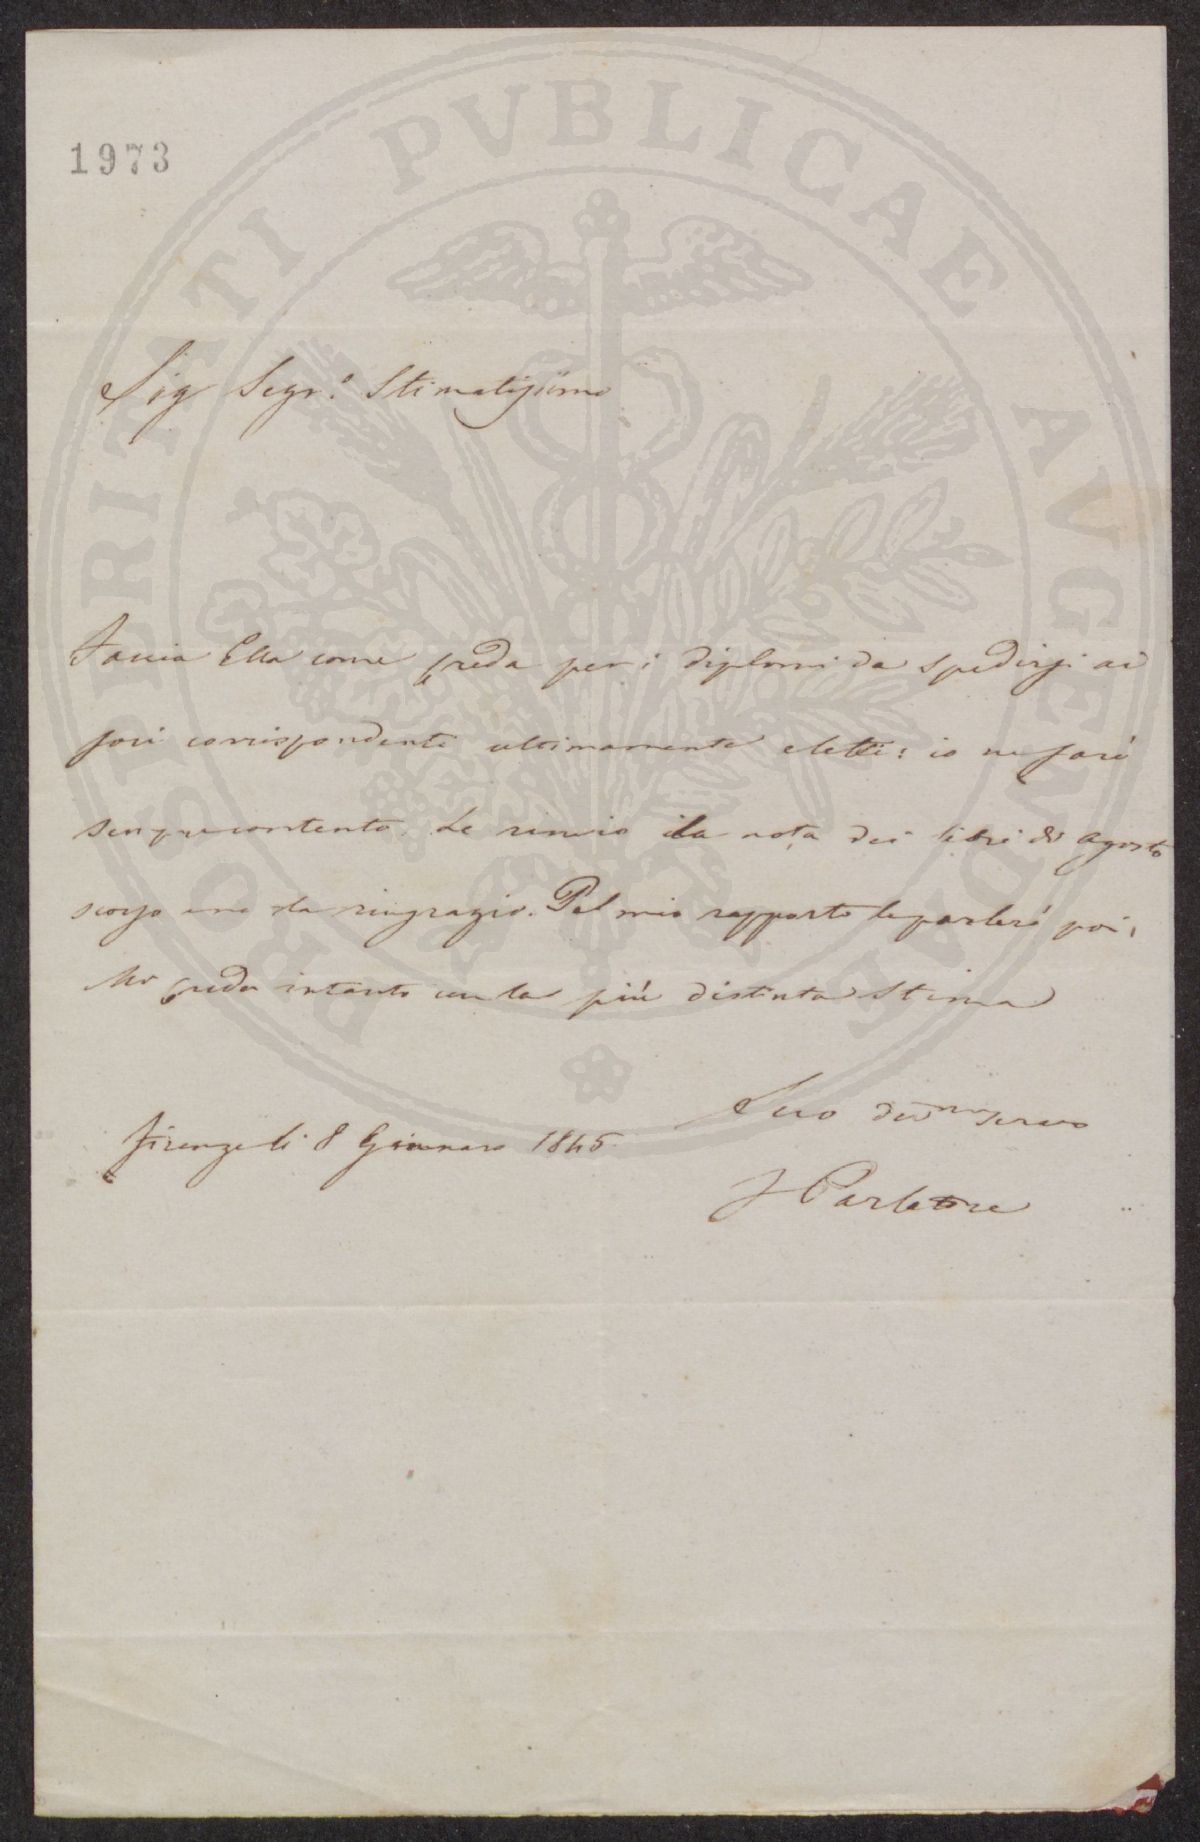 1973
PROSPERITATI PVBLICAE AVGENDAE
Sig Segr.o Stimatissimo
Faccia Ella come creda per i diplomi da spedirsi ai
soci corrispondenti ultimamente eletti: io ne sarò
sempre contento. Le rinvio la nota dei libri di Agosto
scorso e la ringrazio. Del mio rapporto le parlerò poi,
Mi creda intanto con la più distinta stima
Suo dev.mo servo
Firenze li 8 Gennaro 1845
F Parlatore